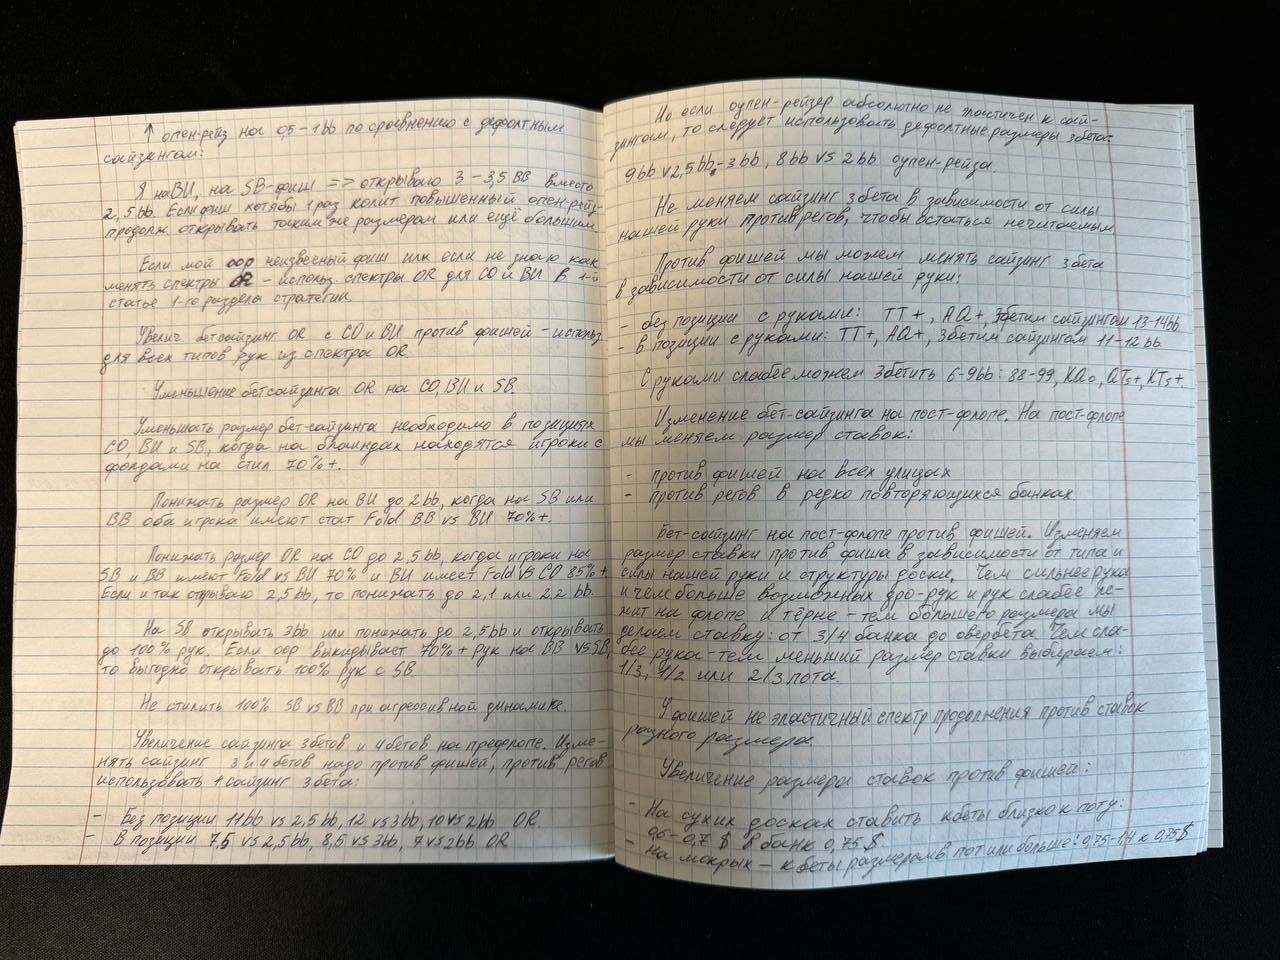 ↑ опен-рейз на 0,5-1bb по сравнению с дефолтным
сайзингам:
Я на BU, на SB-фиш => открываю 3-3,5 BB вместо
2,5bb. Если фиш хотябы 1 раз колит повышенный опен-рейз-
продолж. открывать таким же размером или ещё большим.
Если мой oop неизвесный фиш или если не знаю как
менять спектры OR - использ. спектры OR для CO и BU в 1-й
статье 1-го раздела стратегии.
Увелич. бетсайзинг OR с CO и BU против фишей - использ.
для всех типов рук из спектра OR.
Уменьшение бетсайзинга OR на CO, BU и SB.
Уменьшать размер бет-сайзинга необходимо в позициях
CO, BU и SB, когда на блаиндах находятся игроки с
фолдами на стил 70%+.
Понижать размер OR на BU до 2bb, когда на SB или
BB оба игрока имеют стат Fold BB vs BU 70%+.
Понижать размер OR на CO до 2,5bb, когда игроки на
SB и BB имеют Fold vs BU 70% и BU имеет Fold vs CO 85%+
Если и так открываю 2,5bb, то понижать до 2,1 или 2,2 bb.
На SB открывать 3bb или понижать до 2,5bb и открывать
до 100% рук. Если oop выкидывает 70%+ рук на BB vs SB,
то выгодно открывать 100% рук с SB.
Не стилить 100% SB vs BB при агрессивной динамике.
Увеличение сайзинга 3бетов и 4бетов на префлопе. Изме-
нять сайзинг 3 и 4бетов надо против фишей, против регов
использовать 1 сайзинг 3бета:
- Без позиции 11bb vs 2,5bb, 12 vs 3bb, 10 vs 2bb OR.
- В позиции 7,5 vs 2,5bb, 8,5 vs 3bb, 7 vs 2bb OR
Но если оупен-рейзер абсолютно не эластичен к сай-
зингам, то следует использовать дефолтные размеры 3бета:
9bb v 2,5bb-3bb, 8bb vs 2bb оупен-рейза.
Не меняем сайзинг 3бета в зависимости от силы
нашей руки против регов, чтобы остаться нечитаемым
Против фишей мы можем менять сайзинг 3бета
в зависимости от силы нашей руки:
- без позиции с руками: TT+, AQ+, 3бетим сайзингом 13-14bb
- в позиции с руками: TT+, AQ+, 3бетим сайзингом 11-12 bb
С руками слабее можем 3бетить 6-9bb: 88-99, KQo, QTs+, KTs+
Изменение бет-сайзинга на пост-флопе. На пост-флопе
мы меняем размер ставок:
- против фишей на всех улицах
- против регов в редко повторяющихся банках
Бет-сайзинг на пост-флопе против фишей. Изменяем
размер ставки против фиша в зависимости от типа и
силы нашей руки и структуры доски. Чем сильнее рука
и чем больше возможных дро-рук и рук слабее ле-
жит на флопе и тёрне - тем большего размера мы
делаем ставку: от 3/4 банка до овербета. Чем сла-
бее рука - тем меньший размер ставки выбираем:
1/3, 1/2 или 2/3 пота.
У фишей не эластичный спектр продолжения против ставок
разного размера.
Увеличение размера ставок против фишей:
- На сухих досках ставить кбеты близко к поту:
0,6-0,7 $ в банк 0,75 $
- На мокрых - к беты размерамв пот или больше: 0,75-1,4 к 0,75$